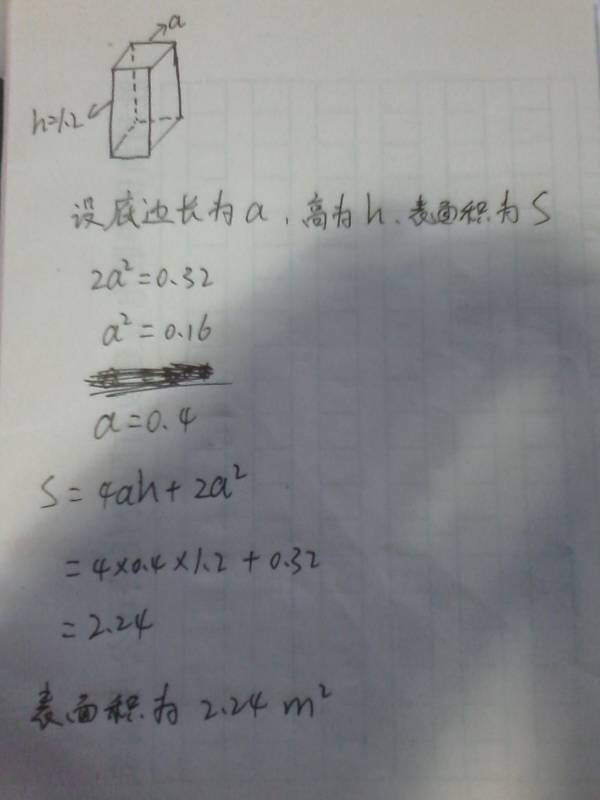 a
h=1.2
设底边长为a，高为h、表面积为S
2a²=0.32
a²=0.16
a=0.4
S=4ah+2a²
=4×0.4×1.2+0.32
=2.24
表面积为2.24m²